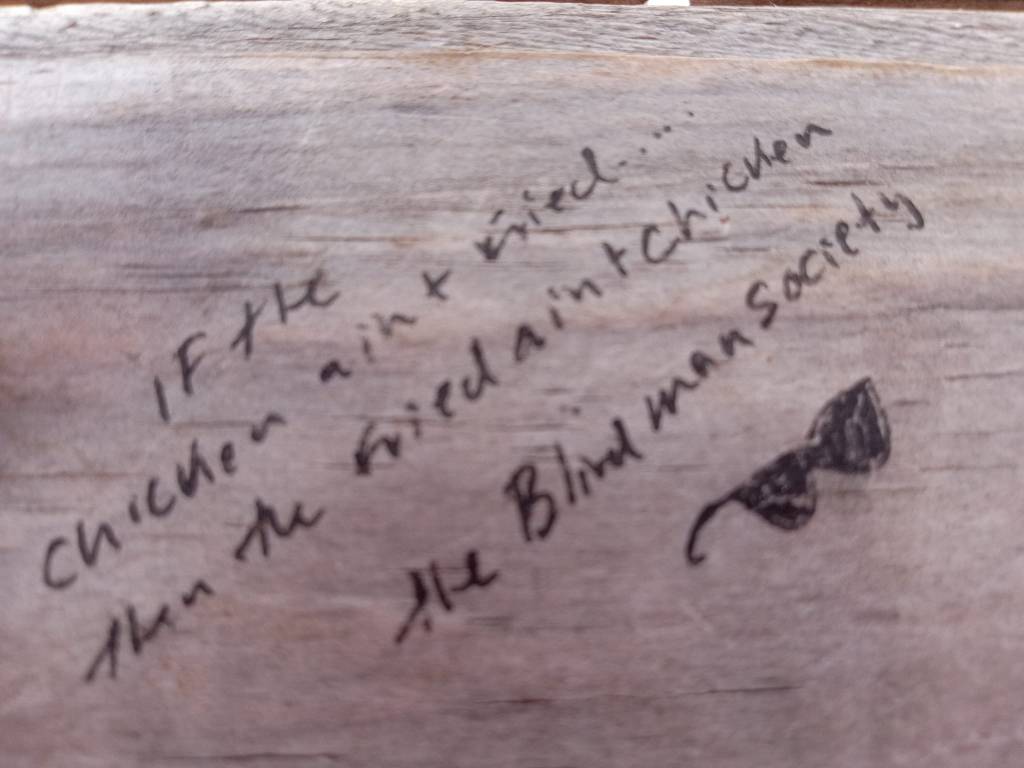 IF the
chicken ain't fried.....
then the fried aint chicken
the Blind man society